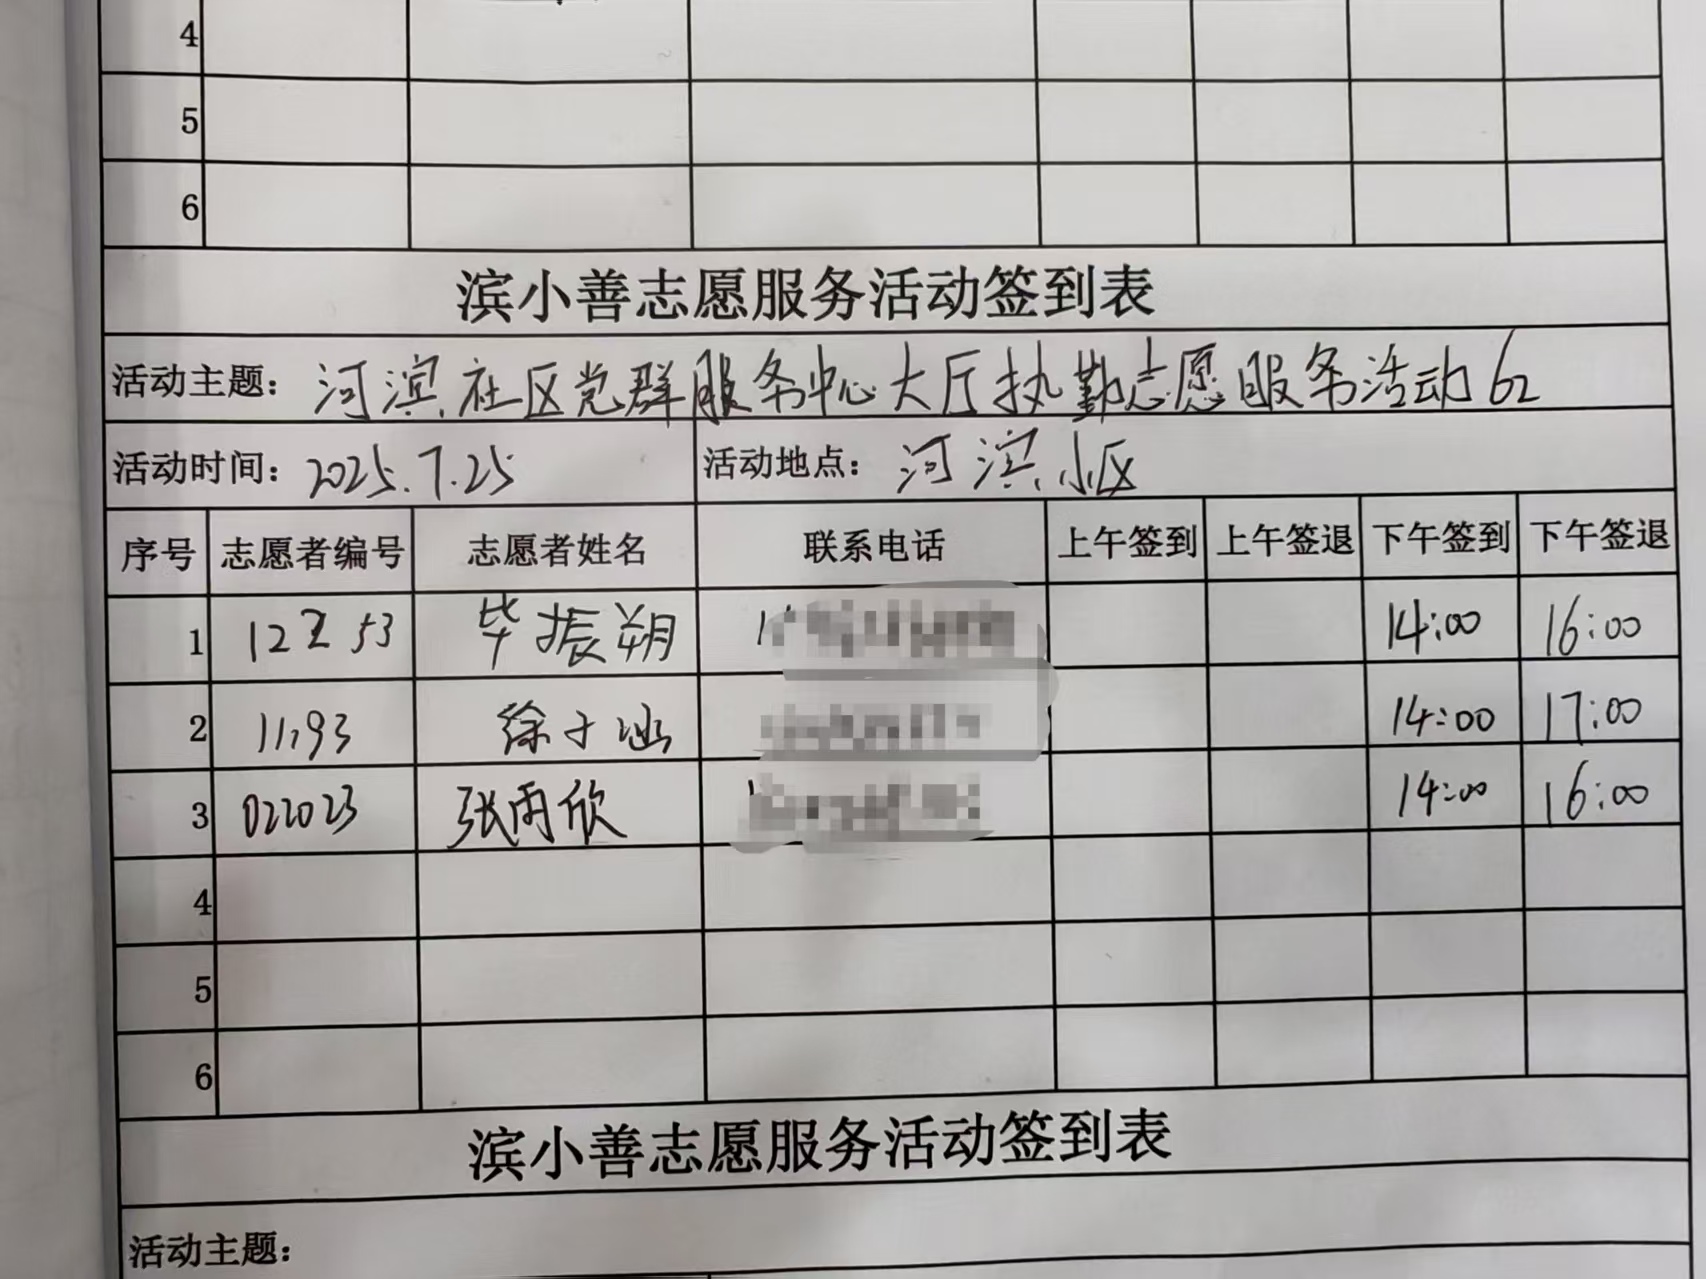 4
5
6
滨小善志愿服务活动签到表
活动主题：河滨社区党群服务中心大厅执勤志愿服务活动62
活动时间：2025.7.25 活动地点：河滨小区
序号 志愿者编号 志愿者姓名 联系电话 上午签到 上午签退 下午签到 下午签退
1 12253 毕振朔 14:00 16:00
2 11193 徐子涵 14:00 17:00
3 022023 张雨欣 14:00 16:00
4
5
6
滨小善志愿服务活动签到表
活动主题：